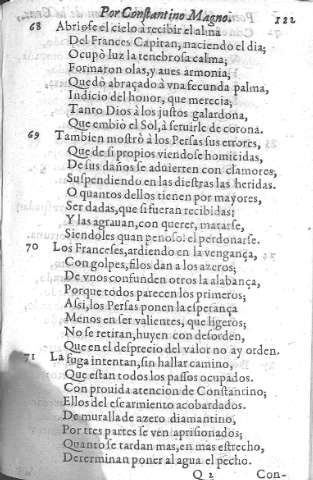 Por Constantino Magno. 122
68 Abriose el cielo a recibir el alma
Del Frances Capitan, naciendo el dia;
Ocupò luz la tenebrosa calma,
Formaron olas, y aues armonia;
Quedò abraçado à vna fecunda palma,
Indicio del honor, que merecia;
Tanto Dios à los justos galardona,
Que embiò el Sol, à seruirle de corona.
69 Tambien mostrò à los Persas sus errores,
Que de si propios viendose homicidas,
De sus daños se aduierten con clamores,
Suspendiendo en las diestras las heridas.
O quantos dellos tienen por mayores,
Ser dadas, que si fueran recibidas;
Y las agrauan, con querer, matarse,
Siendoles quan penoso: el perdonarse.
70 Los Franceses, ardiendo en la vengança,
Con golpes, filos dan a los azeros;
De vnos confunden otros la alabança,
Porque todos parecen los primeros;
Assi, los Persas ponen la esperança
Menos en ser valientes, que ligeros;
No se retiran, huyen con desorden,
Que en el desprecio del valor no ay orden.
71 La fuga intentan, sin hallar camino,
Que estan todos los passos ocupados.
Con prouida atencion de Constantino;
Ellos del escarmiento acobardados.
De muralla de azero diamantino,
Por tres partes se ven aprisionados;
Quanto se tardan mas, en mas estrecho,
Determinan poner al agua el pecho.
Q 2 Con-